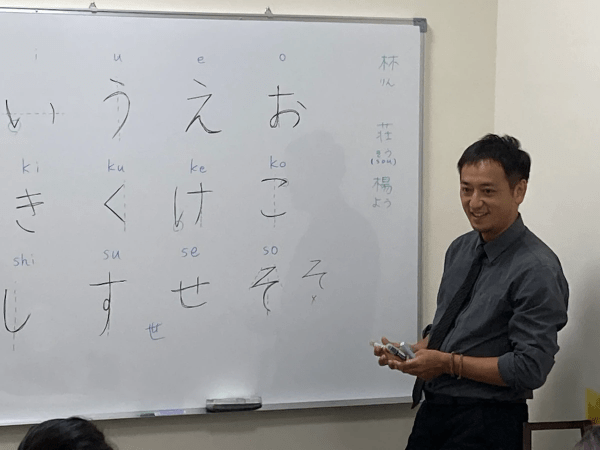 i u e o
い う え お
ki ku ke ko
き く け こ
shi su se so
し す せ そ そ
世
林
りん
荘
そう
(sou)
楊
よう